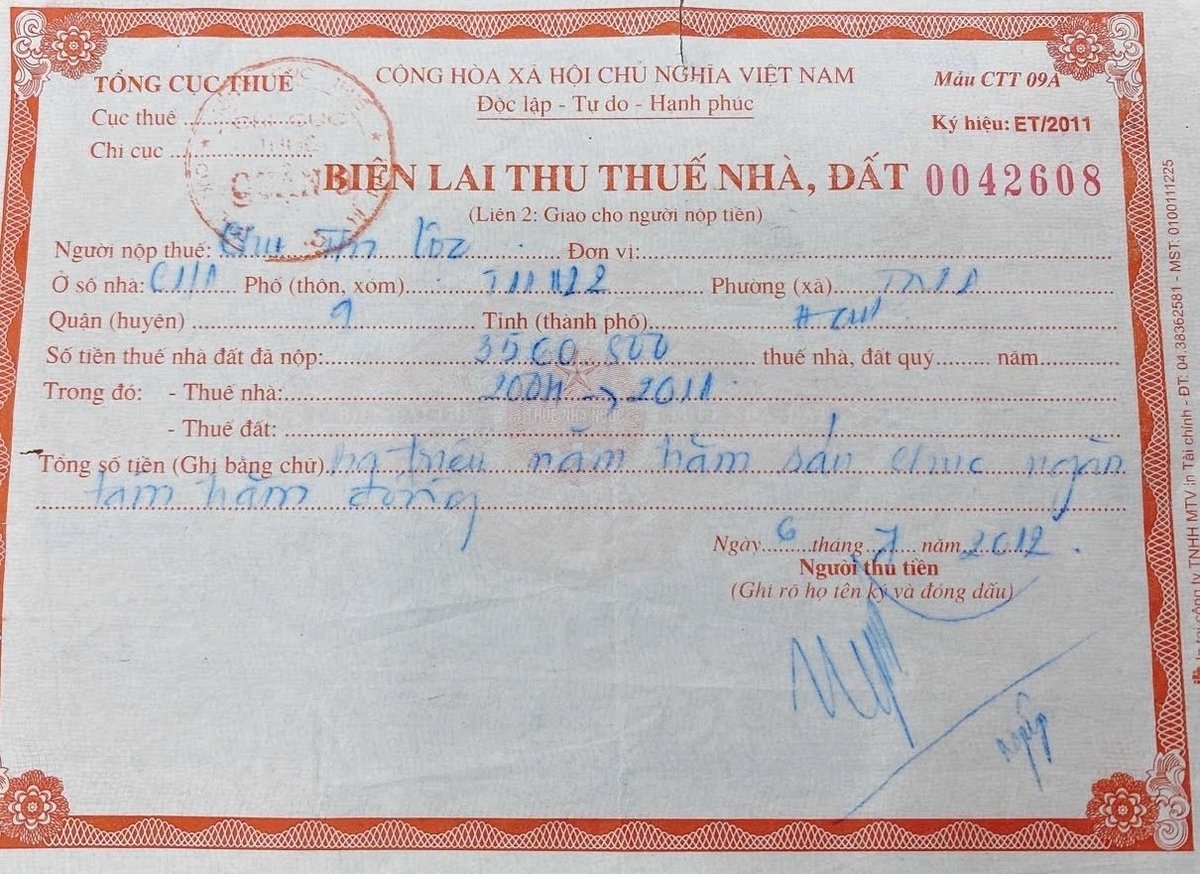 TỔNG CỤC THUẾ
CỘNG HÒA XÃ HỘI CHỦ NGHĨA VIỆT NAM
Mẫu CTT 09A
Cục thuế
Độc lập - Tự do - Hạnh phúc
Ký hiệu: ET/2011
Chi cục
QUẬN 9
BIÊN LAI THU THUẾ NHÀ, ĐẤT 0042608
(Liên 2: Giao cho người nộp tiền)
Người nộp thuế: Đơn vị:
Ở số nhà: Phố (thôn, xóm) Phường (xã)
Quận (huyện) 9 Tỉnh (thành phố) HCM
Số tiền thuế nhà đất đã nộp: 3560 800 thuế nhà, đất quý năm
Trong đó: - Thuế nhà: 2004 -> 2011
THUẾ NHÀ NƯỚC
- Thuế đất:
Tổng số tiền (Ghi bằng chữ) ba triệu năm trăm sáu chục ngàn
tám trăm đồng
Ngày 6 tháng 7 năm 2012
Người thu tiền
(Ghi rõ họ tên ký và đóng dấu)
In tại công ty TNHH MTV in Tài chính - ĐT: 04.38362581 - MST: 0100111225